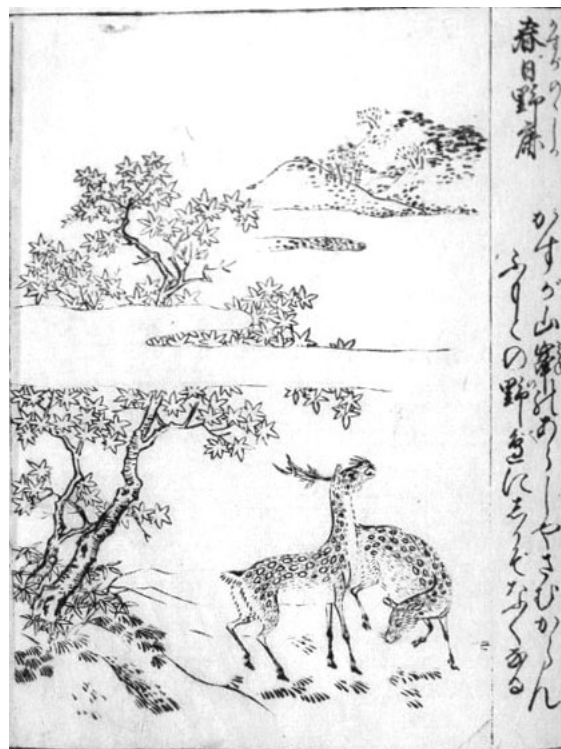 かすがのゝしか
春日野鹿
かすが山峯のあらしやさむからん
ふもとの野邊にしかぞなくなる